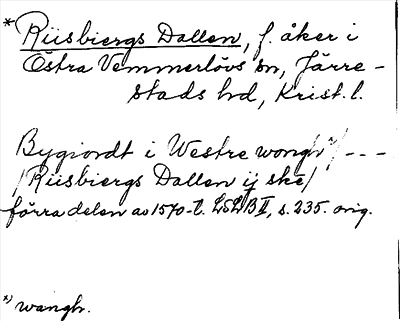 *Riisbiergs Dallen, f. åker i
Östra Vemmerlövs sn, Järre-
stads hd, Krist. l.
Bygiordt i Westre wongh x)/ - - -
/Riisbiergs Dallen ij ske/
förra delen av 1570-t. LSLB II, s. 235. orig.
x) wangh.